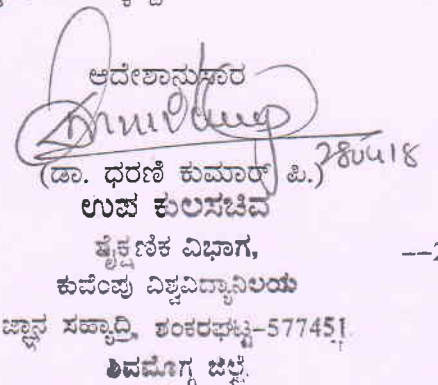 ಆದೇಶಾನುಸಾರ
(ಡಾ. ಧರಣಿ ಕುಮಾರ್ ಪಿ.)
ಉಪ ಕುಲಸಚಿವ
ಶೈಕ್ಷಣಿಕ ವಿಭಾಗ,
ಕುವೆಂಪು ವಿಶ್ವವಿದ್ಯಾನಿಲಯ
ಜ್ಞಾನ ಸಹ್ಯಾದ್ರಿ, ಶಂಕರಘಟ್ಟ-577451.
ಶಿವಮೊಗ್ಗ ಜಿಲ್ಲೆ.